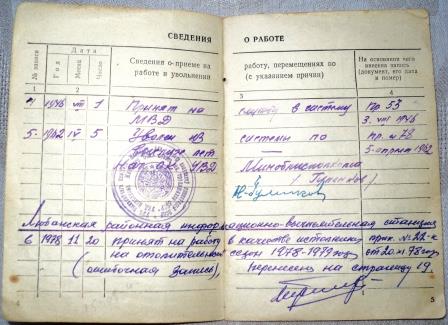 СВЕДЕНИЯ О РАБОТЕ
№ записи
Дата
Год
Месяц
Число
Сведения о приеме на работе и увольнении
работу, перемещениях по
(с указанием причин)
На основании чего внесена запись (документ, его дата и номер)
1 2 3 4
4 1946 VIII 1 Принят на службу в систему Пр. 53
МВД 3. VIII 1946
5 1962 IV 5 Уволен из системы по пр. № 78
5-апреля 1962
Любанская районная информационно-вычислительная станция
6 1978 11 20 принят на работу в качестве истопника прик. № 22-к
на отопительный сезон 1978-1979 года от 20 XI 78 года
(ошибочная запись), Перенесено на страницу 19.
4 5